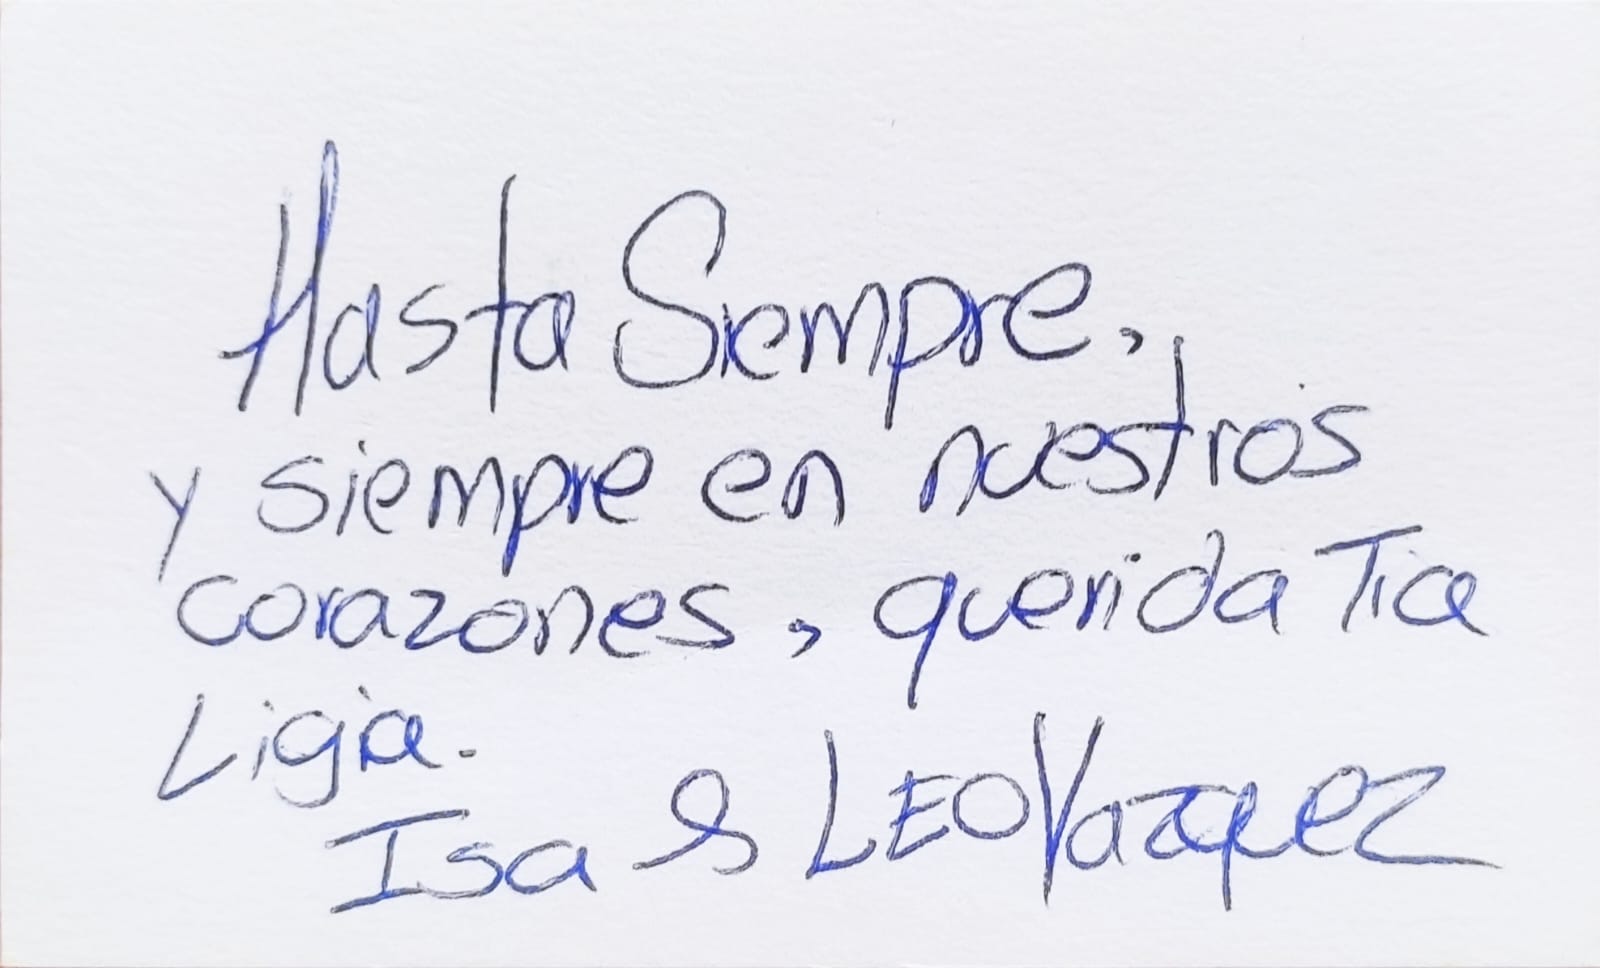 Hasta Siempre,
y siempre en nuestros
corazones, querida Tia
Ligia.
Isa & LEO Vazquez